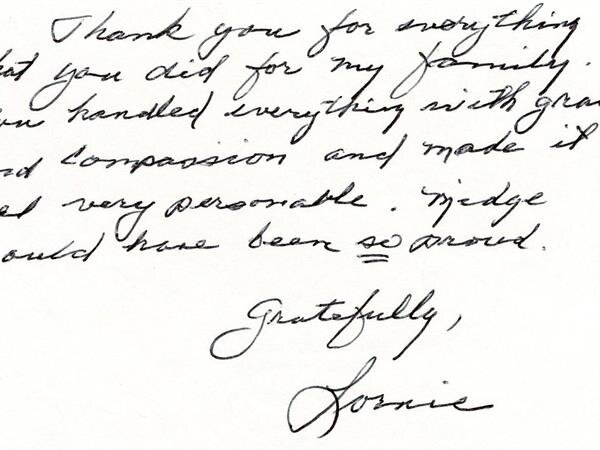 Thank you for everything
hat you did for my family.
ou handled everything with grac
nd compassion and made it
el very personable. Midge
ould have been so proud.
Gratefully,
Lornie